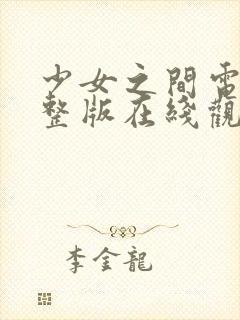 少女之間電
整版在綫觀
李金龍